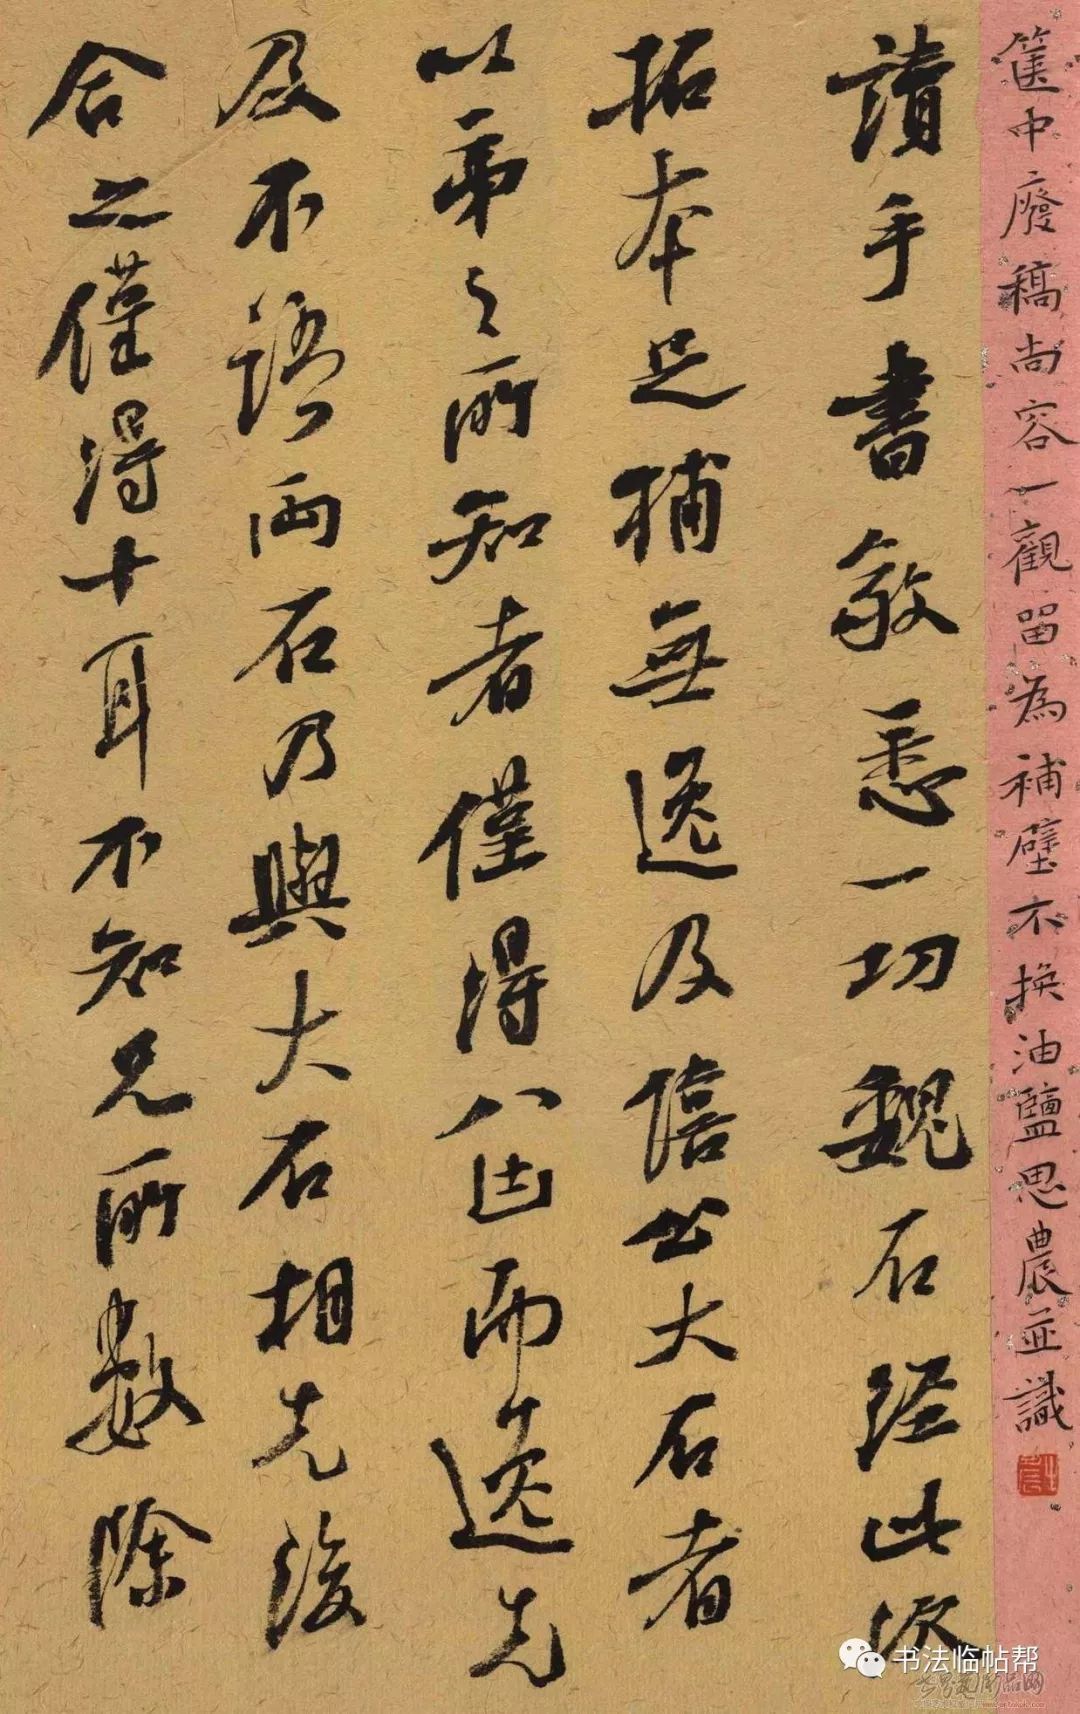 篋中廢稿尚容一觀留為補壁不換油鹽思農並識
讀手書敬悉一切魏石經此次
拓本足補無逸及僖公大石者
以弟之所知者僅得八齿而逸先
及不語兩石乃與大石相先後
合之僅得十耳不知兄所數除
书法临帖帮